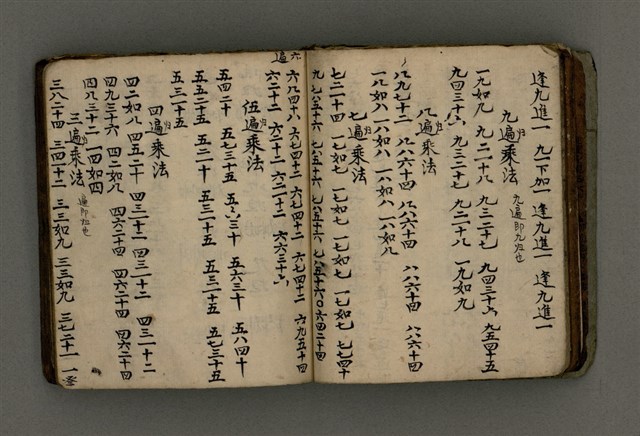 逢九進一 九一下加一 逢九進一 逢九進一
九遍乘法 九遍即九归也
一九如九 九二十八 九三二十七 九四三十六 九五四十五
九四三十六 九三二十七 九二十八 一九如九
八遍乘法
八九七十二 八八六十四 八八六十四 八八六十四 八八六十四
一八如八 一八如八 一八如八 一八如八
七遍乘法
七二十四 一七如七 一七如七 一七如七 七七四十
六遍
六八四十八 六七四十二 六七四十二 六七四十二 六九五十四
六二十二 六二十二 六二十二 六六三十六
伍遍乘法
五四二十 五七三十五 五六三十 五六三十 五八四十
五五二十五 五二十 五三十五 五三二十五 五七三十五
五三十五
四遍乘法
四二如八 四五二十 四三十二 四三十二 四三十二
四九三十六 四二如八 四六二十四 四六二十四 四六二十四
四八三十二 一四如四
三遍乘法 遍即归也
三八二十四 三四十二 三三如九 三三如九 三七二十一